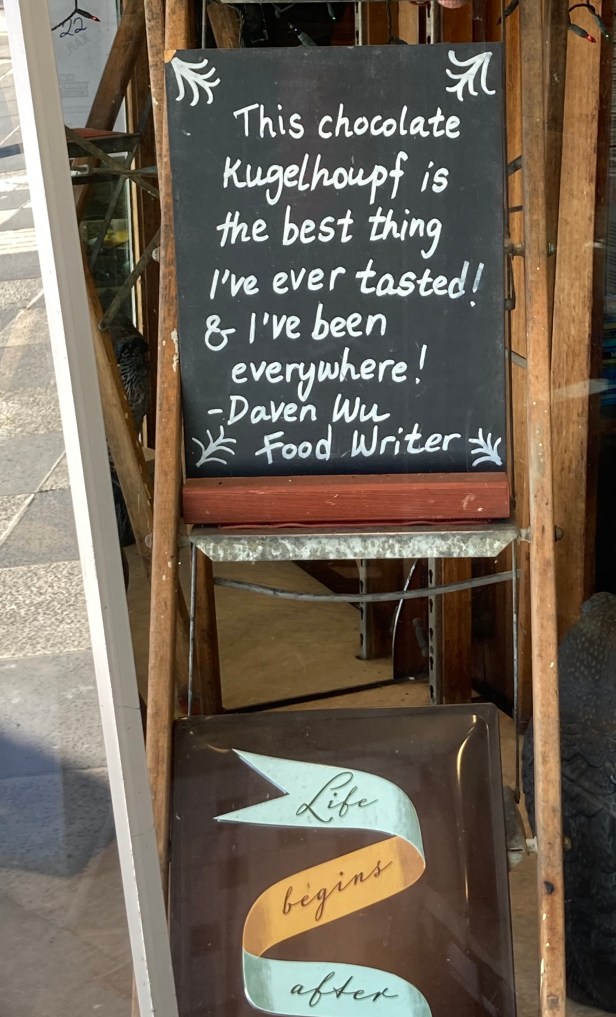 22
This chocolate
Kugelhoupf is
the best thing
I've ever tasted!
& I've been
everywhere!
-Daven Wu
Food Writer
Life
begins
after